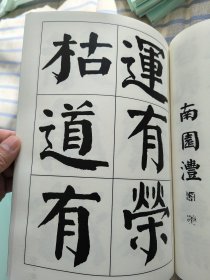 南園灃
運有榮
枯道有